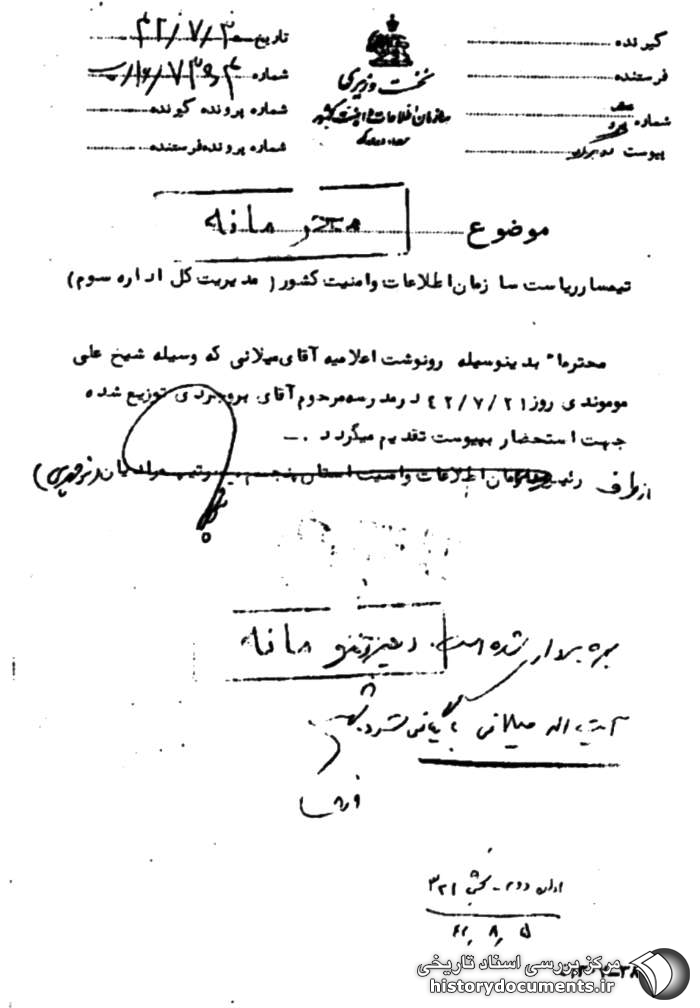 گیرنده
فرستنده
شماره
پیوست
نخست وزیری
سازمان اطلاعات و امنیت کشور
تاریخ ۴۲/۷/۳۰
شماره
شماره پرونده گیرنده
شماره پرونده فرستنده
موضوع
محرمانه
تیمسار ریاست سازمان اطلاعات و امنیت کشور ( مدیریت کل اداره سوم )
محترما" بدینوسیله رونوشت اعلامیه آقای میلانی که وسیله شیخ علی
موموندی روز ۴۲/۷/۲۱ در مدرسه مرحوم آقای بروجردی توزیع شده
جهت استحضار به پیوست تقدیم میگردد .ـ
از طرف رئیس سازمان اطلاعات و امنیت استان پنجم
بهره برداری شده است.
محرمانه
آیت اله میلانی بایگانی شود
اداره دوم - بخش ۳۲۱
۴۲٫۸٫۵
مرکز بررسی اسناد تاریخی
historydocuments.ir